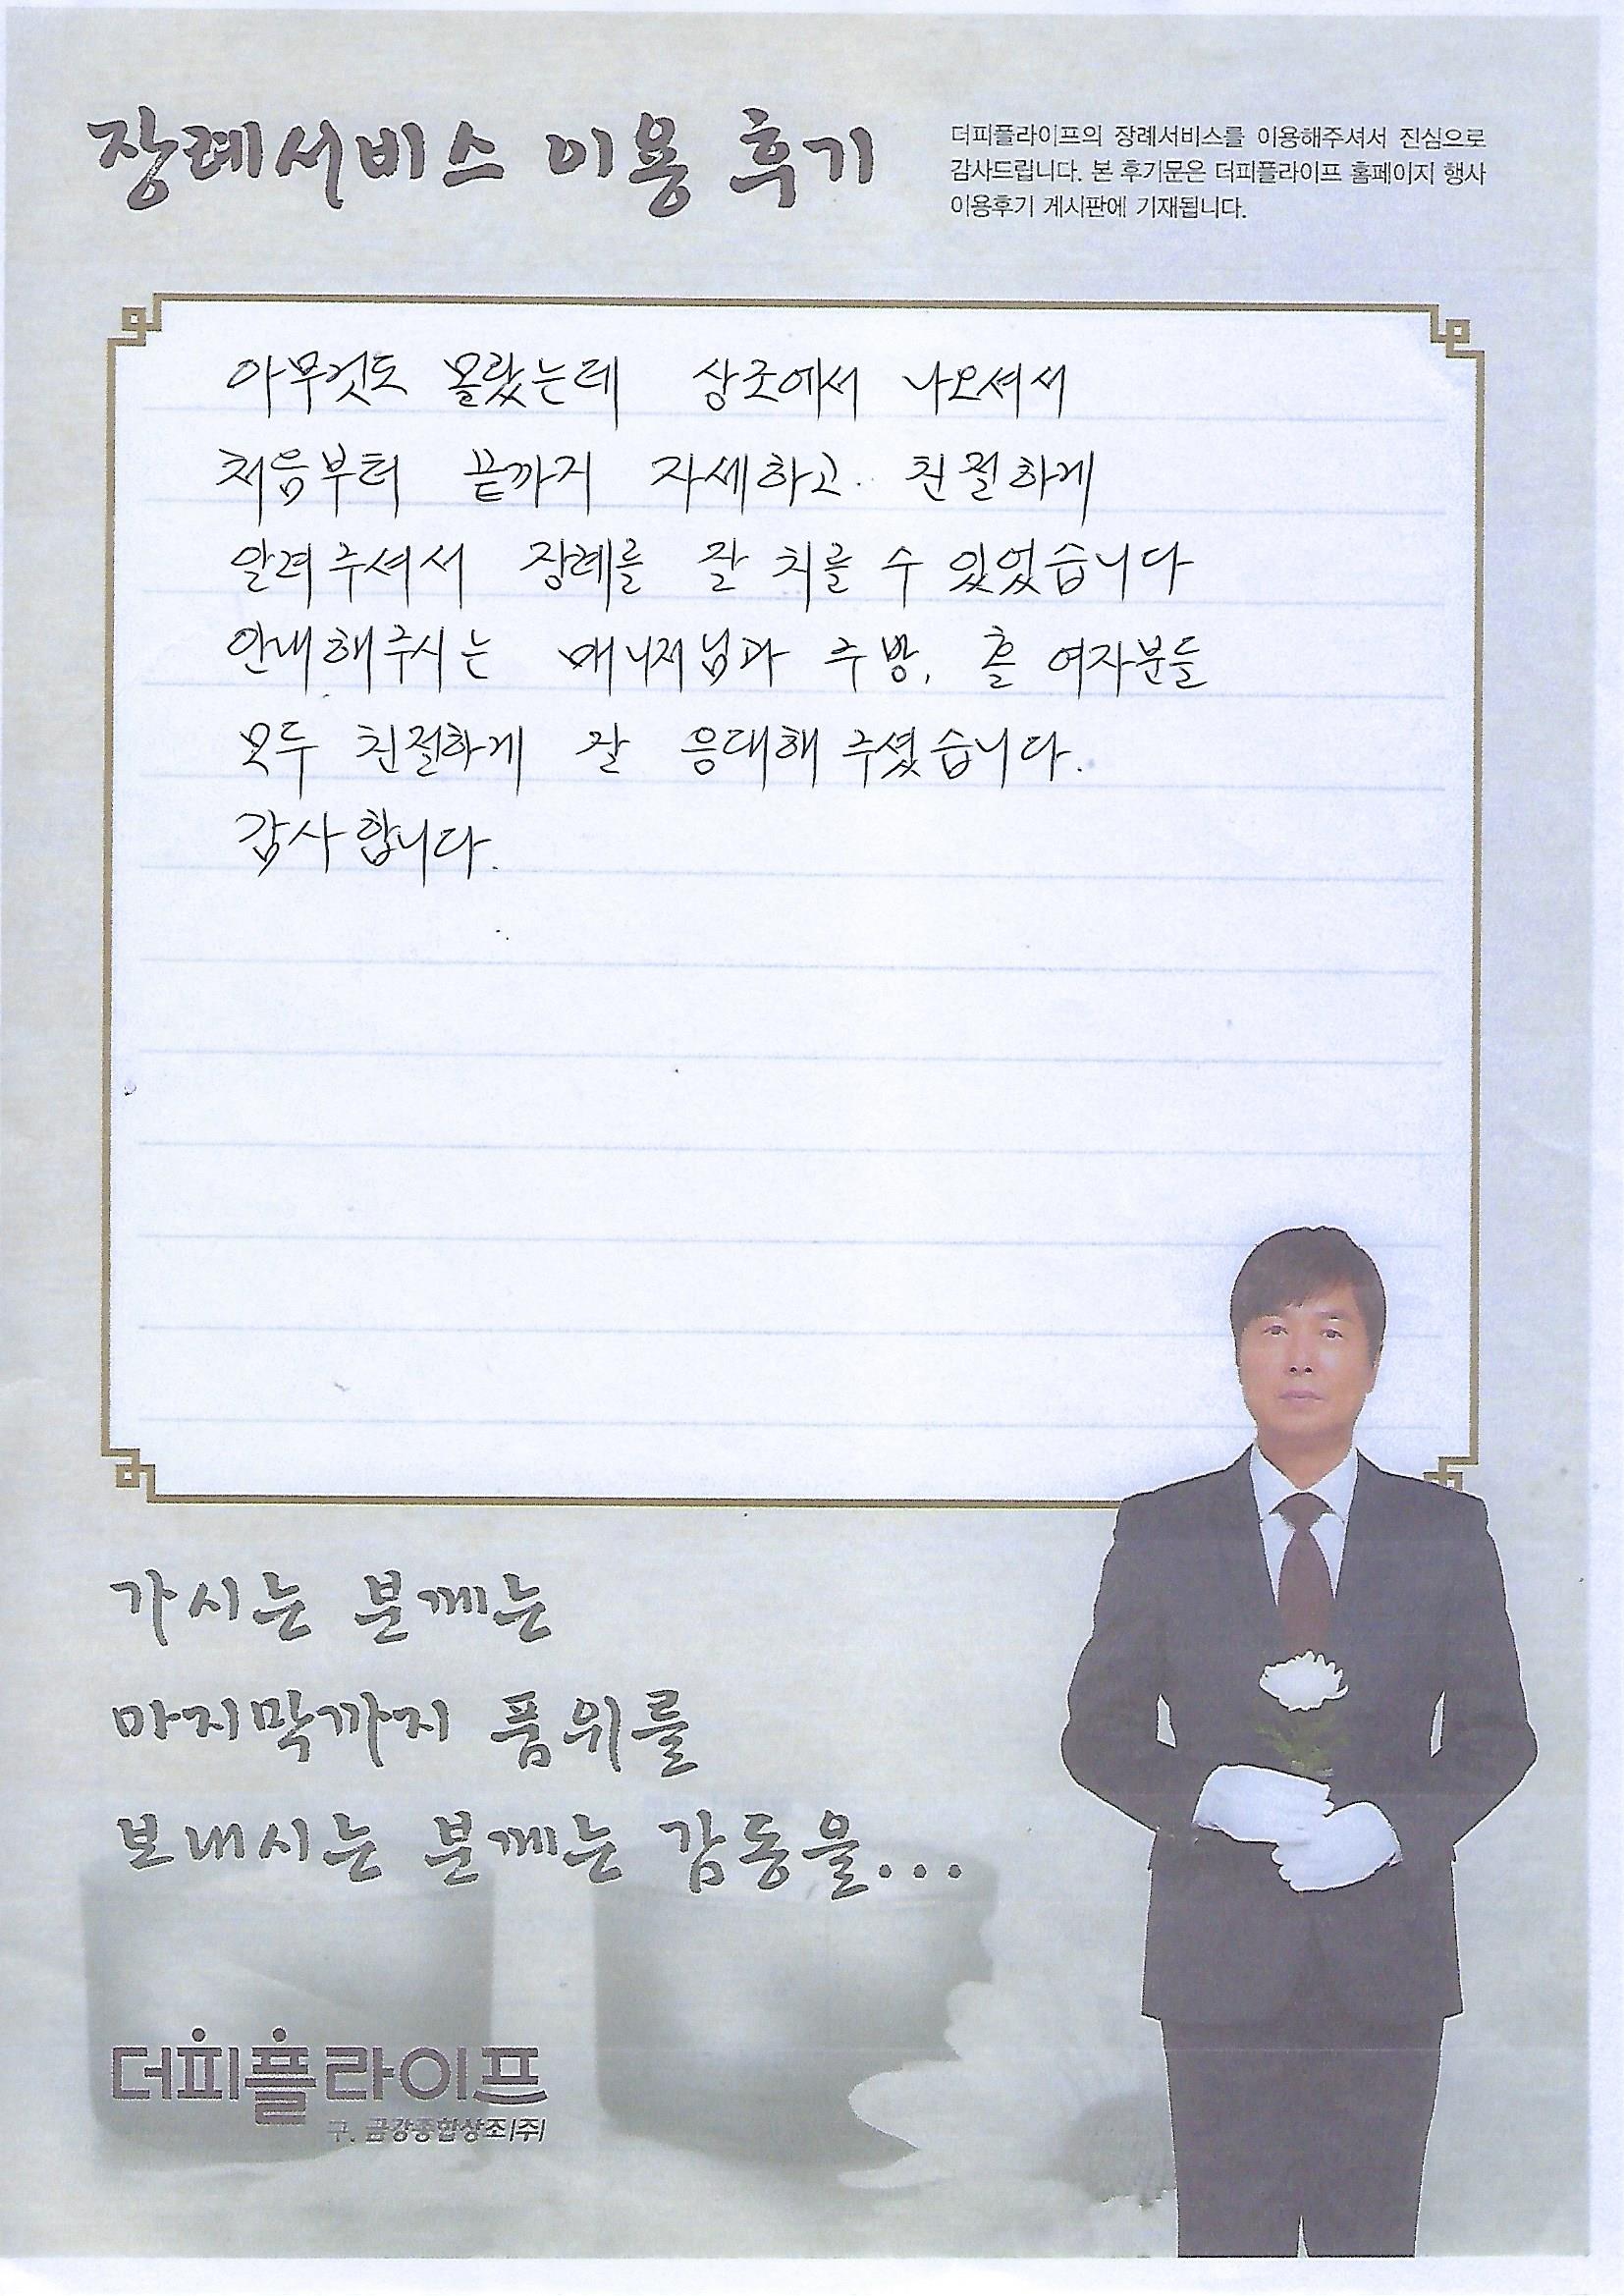 장례서비스 이용 후기
더피플라이프의 장례서비스를 이용해주셔서 진심으로
감사드립니다. 본 후기문은 더피플라이프 홈페이지 행사
이용후기 게시판에 기재됩니다.
아무것도 몰랐는데 상조에서 나오셔서
처음부터 끝까지 자세하고 친절하게
알려주셔서 장례를 잘 치를 수 있었습니다
안내해주시는 매니저님과 주방, 홀 여자분들
모두 친절하게 잘 응대해 주셨습니다.
감사합니다.
가시는 분께는
마지막까지 품위를
보내시는 분께는 감동을...
더피플라이프
구. 금강종합상조(주)